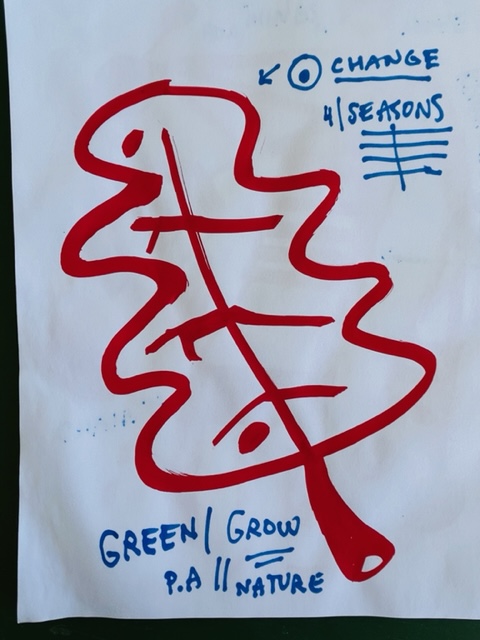 CHANGE
4/SEASONS
GREEN/GROW
P.A // NATURE